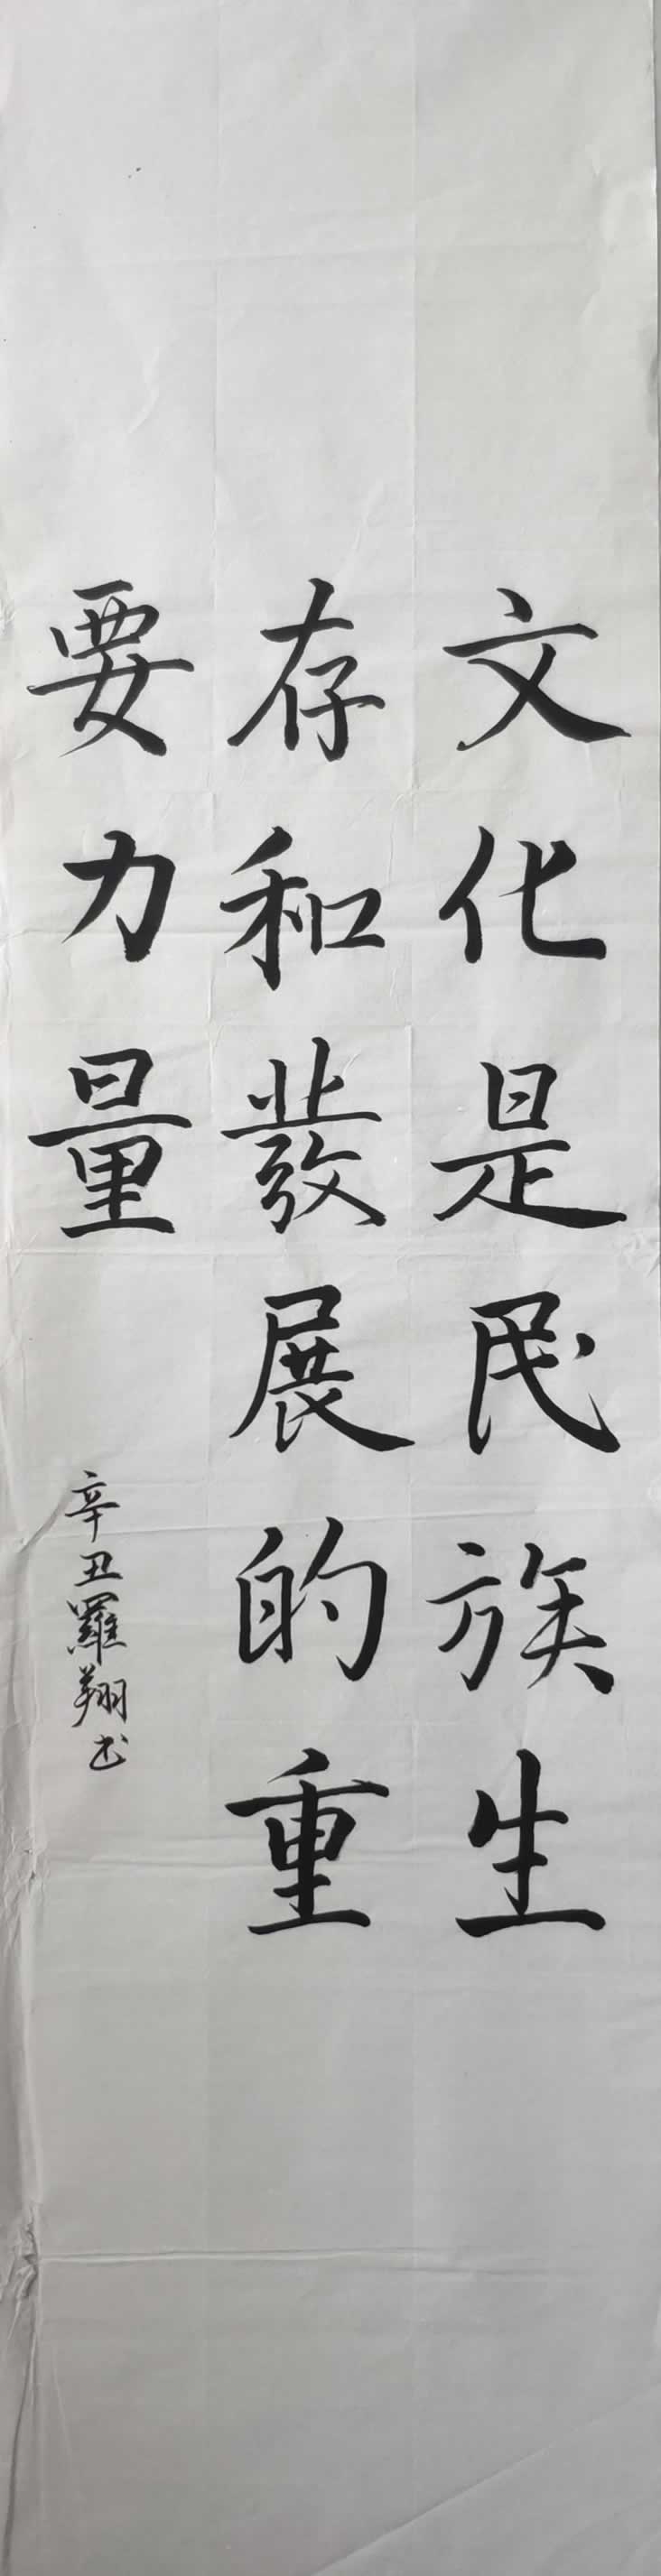 文化是民族生
存和發展的重
要力量
辛丑羅翔书